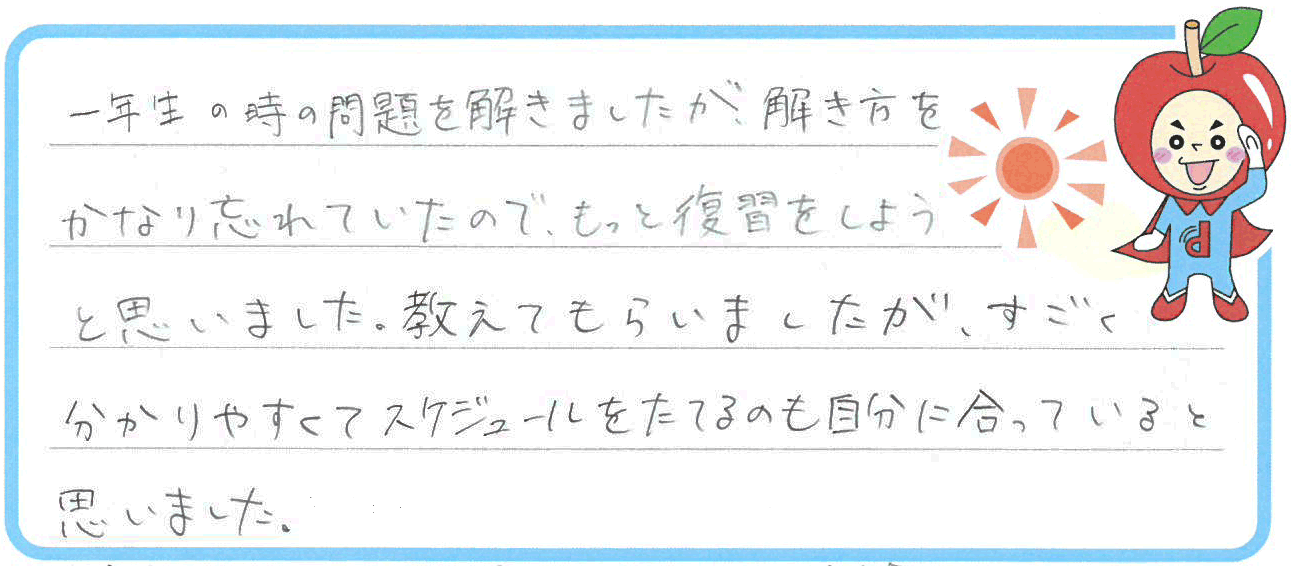 一年生の時の問題を解きましたが、解き方を
かなり忘れていたので、もっと復習をしよう
と思いました。教えてもらいましたが、すごく
分かりやすくてスケジュールをたてるのも自分に合っていると
思いました。